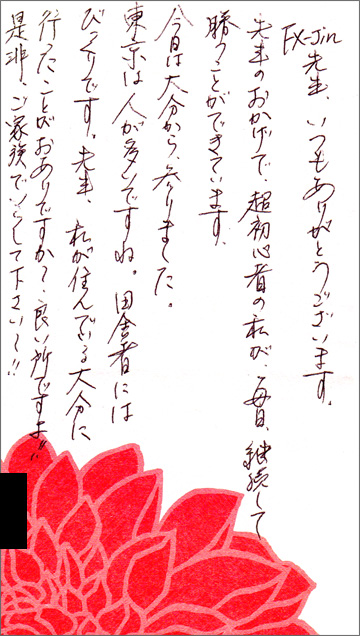 FX-Jin先生、いつもありがとうございます。
先生のおかげで、超初心者の私が、毎日、継続して
勝つことができています。
今日は大分から、参りました。
東京は人が多いですね。田舎者には
びっくりです。先生、私が住んでいる大分に
行ったことがおありですか?良い所ですよ!!
是非、ご家族でいらして下さい〜!!